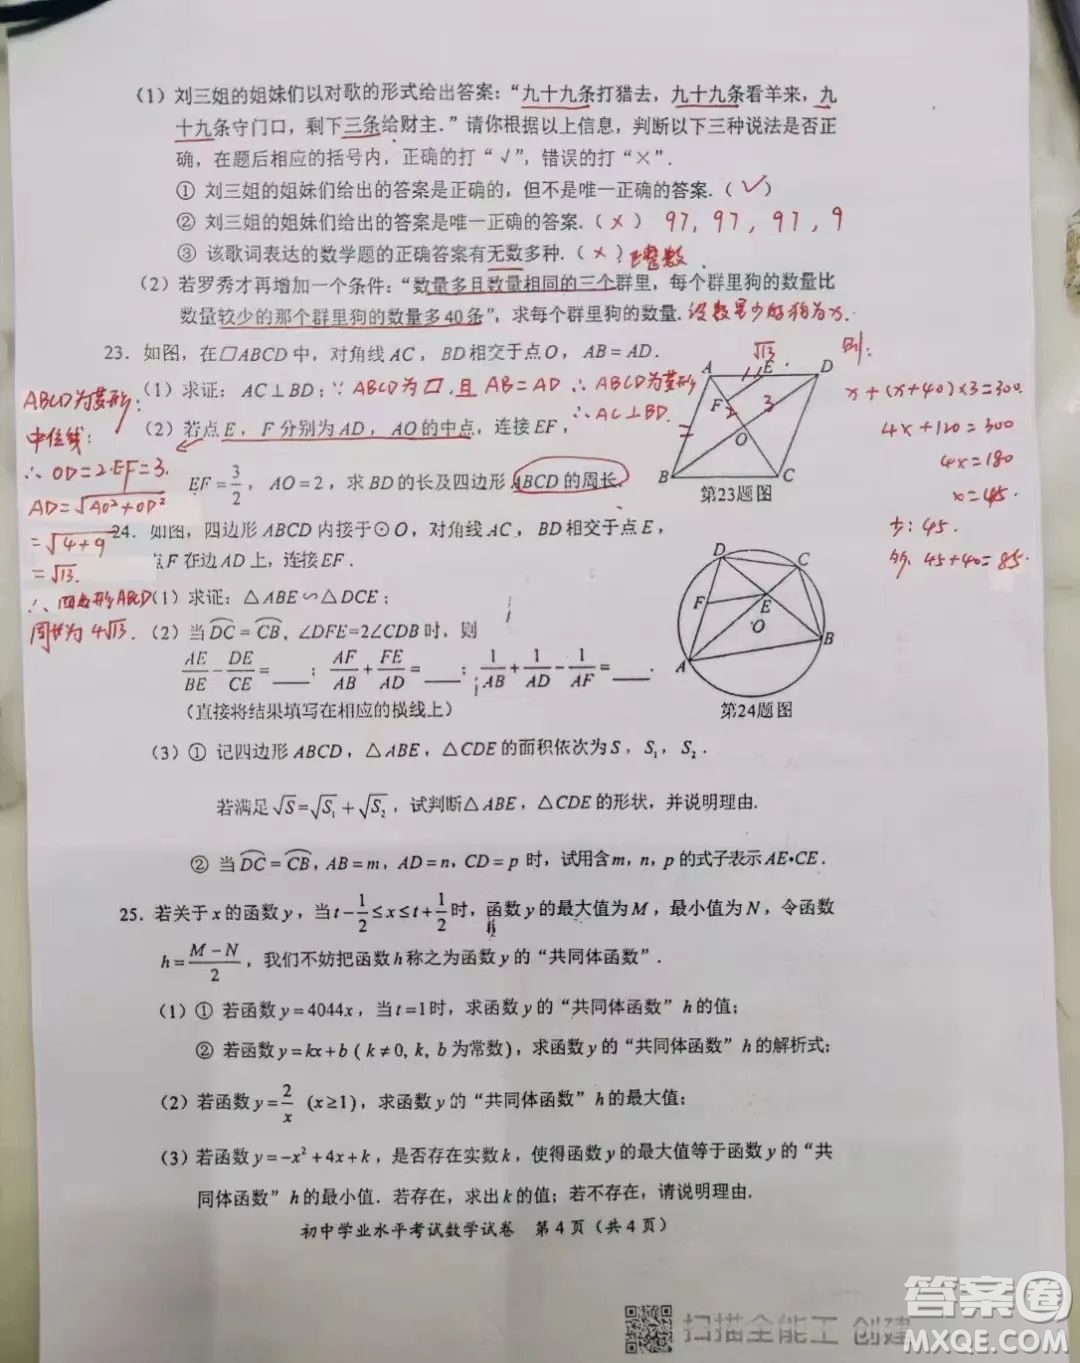 (1) 刘三姐的姐妹们以对歌的形式给出答案：“九十九条打猎去，九十九条看羊来，九
十九条守门口，剩下三条给财主．”请你根据以上信息，判断以下三种说法是否正
确，在题后相应的括号内，正确的打“√”，错误的打“×”．
① 刘三姐的姐妹们给出的答案是正确的，但不是唯一正确的答案．( √ )
② 刘三姐的姐妹们给出的答案是唯一正确的答案．( × ) 97, 97, 97, 9
③ 该歌词表达的数学题的正确答案有无数多种．( × ) 正整数．
(2) 若罗秀才再增加一个条件：“数量多且数量相同的三个群里，每个群里狗的数量比
数量较少的那个群里狗的数量多40条”，求每个群里狗的数量. 设数量少的狗为x．
则：
x+(x+40)×3=300.
4x+120=300
4x=180
x=45.
少：45.
多：45+40=85.
23．如图，在□ABCD中，对角线AC，BD相交于点O，AB=AD．
(1) 求证：AC⊥BD；∵ ABCD为□，且 AB=AD ∴ ABCD为菱形
∴ AC⊥BD.
(2) 若点E，F分别为AD，AO的中点，连接EF，
EF=3/2，AO=2，求BD的长及四边形ABCD的周长．
ABCD为菱形：
中位线：
∴ OD=2·EF=3.
AD=√AO²+OD²
=√4+9
=√13.
∴ 四边形ABCD
周长为 4√13.
√13
A E D
F 2 3
O
B C
第23题图
24．如图，四边形ABCD内接于⊙O，对角线AC，BD相交于点E，
点F在边AD上，连接EF．
(1) 求证：△ABE∽△DCE；
(2) 当DC=CB，∠DFE=2∠CDB时，则
AE/BE－DE/CE=____；AF/AB+FE/AD=____；1/AB+1/AD－1/AF=____．
(直接将结果填写在相应的横线上)
D C
F E
O B
A
第24题图
(3) ① 记四边形ABCD，△ABE，△CDE的面积依次为S，S₁，S₂．
若满足√S=√S₁+√S₂，试判断△ABE，△CDE的形状，并说明理由.
② 当DC=CB，AB=m，AD=n，CD=p时，试用含m，n，p的式子表示AE•CE．
25．若关于x的函数y，当t－1/2≤x≤t+1/2时，函数y的最大值为M，最小值为N，令函数
h=(M－N)/2，我们不妨把函数h称之为函数y的“共同体函数”．
(1) ① 若函数y=4044x，当t=1时，求函数y的“共同体函数”h的值；
② 若函数y=kx+b (k≠0, k, b为常数)，求函数y的“共同体函数”h的解析式；
(2) 若函数y=2/x (x≥1)，求函数y的“共同体函数”h的最大值；
(3) 若函数y=－x²+4x+k，是否存在实数k，使得函数y的最大值等于函数y的“共
同体函数”h的最小值．若存在，求出k的值；若不存在，请说明理由.
初中学业水平考试数学试卷 第4页（共4页）
扫描全能王 创建
答案圈
MXQE.COM